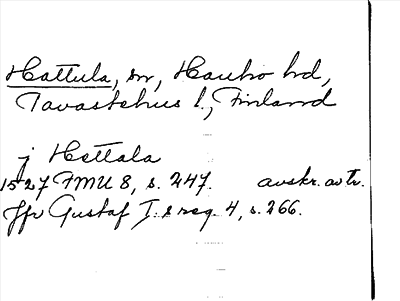 Hattula, sn, Hauho hd,
Tavastehus l., Finland
j Hattala
1527 FMU 8, s. 247. avskr. av tr.
Jfr Gustaf I:s reg. 4, s. 266.